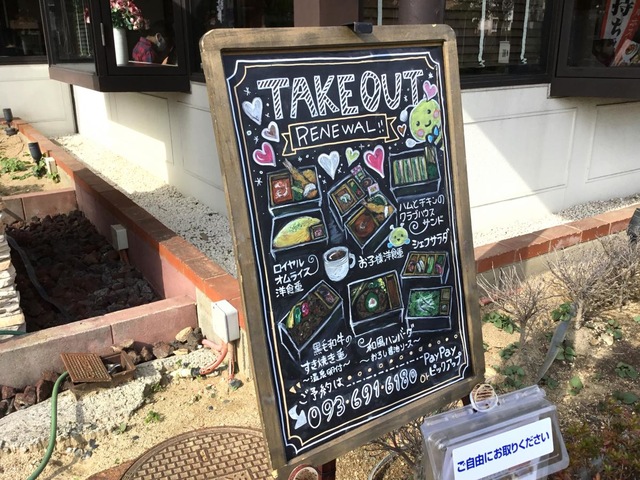 TAKE OUT
RENEWAL!!
ハムとチキンの
クラブハウス
サンド
シェフサラダ
お子様洋食重
ロイヤル
オムライス
洋食重
黒毛和牛の
すき焼き重
～温泉卵付～
和風ハンバーグ
～おろし醤油ソース～
ご予約は
PayPay
or ピックアップ
093-691-6180
ご自由にお取りください